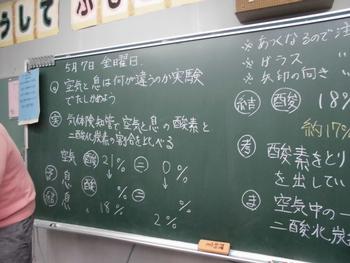 うして ふし
5月7日 金曜日.
問 空気と息は何が違うのか実験
でたしかめよう
実 気体検知管で空気と息の酸素と
二酸化炭素の割合を比べる
空気 酸 21% 二 0%
予 息 酸 % 二 %
結 息 18% 2%
※ あつくなるので注
※ ガラス
※ 矢印の向き
結 酸 18%
約17%
考 酸素をとり
を出してい
ま 空気中の一
二酸化炭